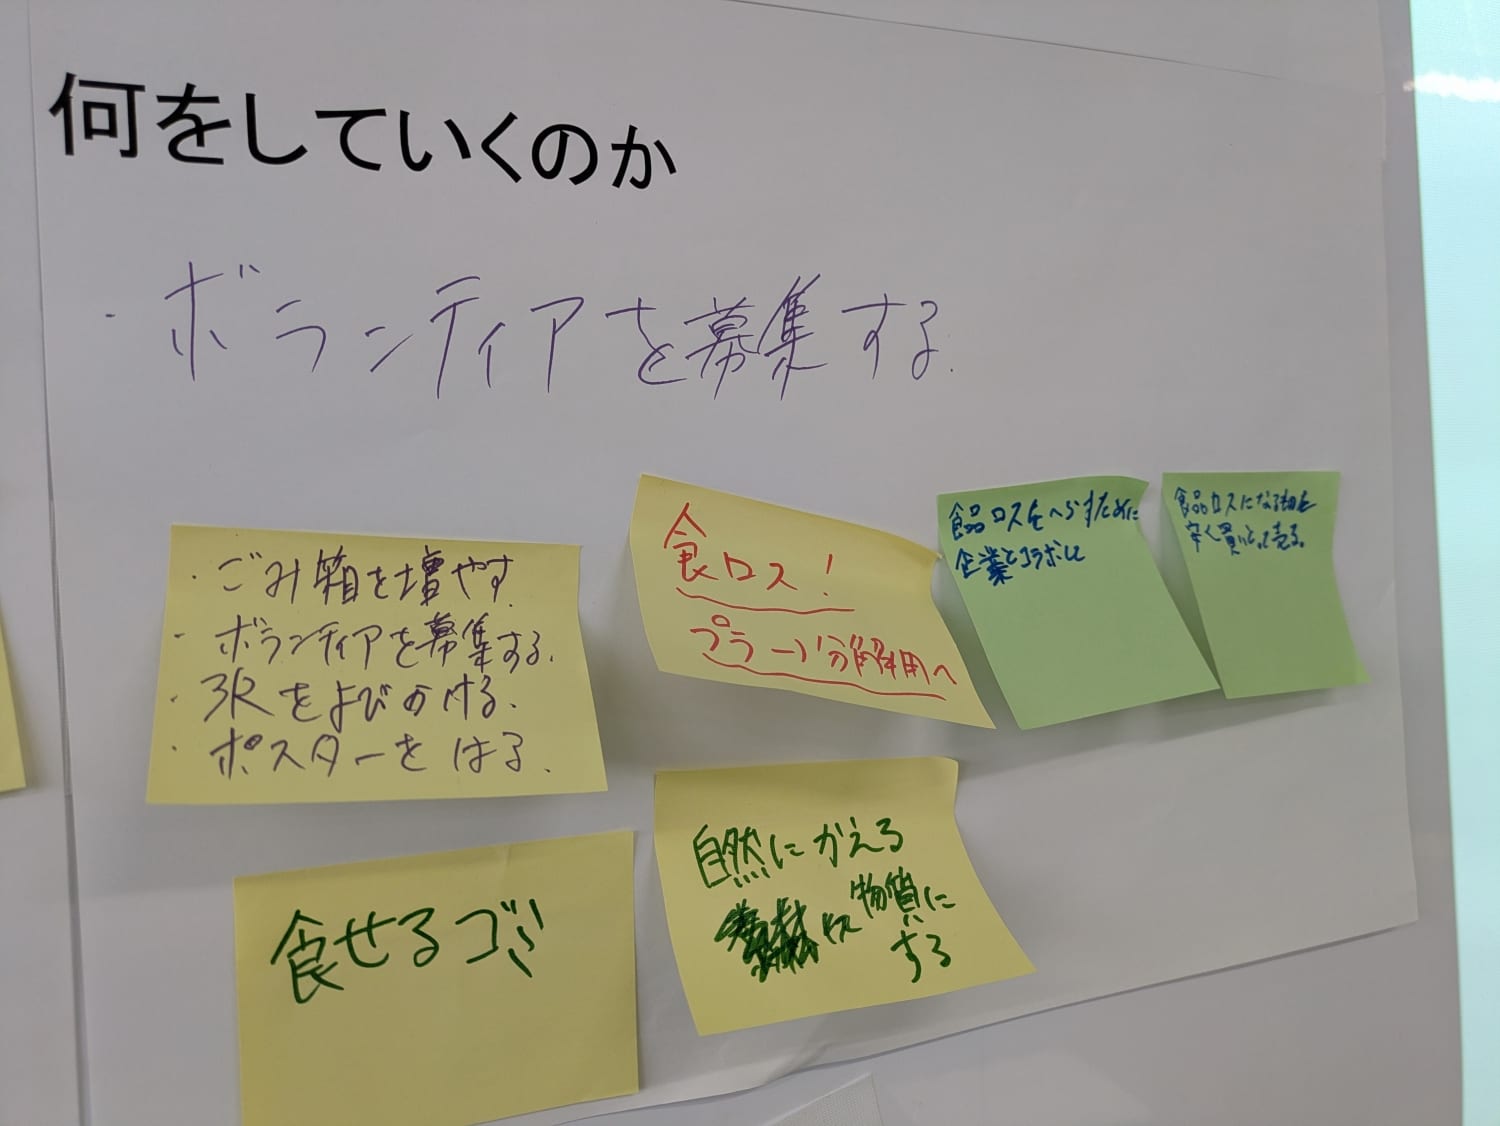 何をしていくのか
・ボランティアを募集する.
・ごみ箱を増やす.
・ボランティアを募集する.
・3Rをよびかける.
・ポスターをはる.
食ロス!
分解用へ
食品ロスをへらすために
企業とコラボして
食品ロスになる物を
安く買いとって売る。
食せるゴミ
自然にかえる
物質に
する